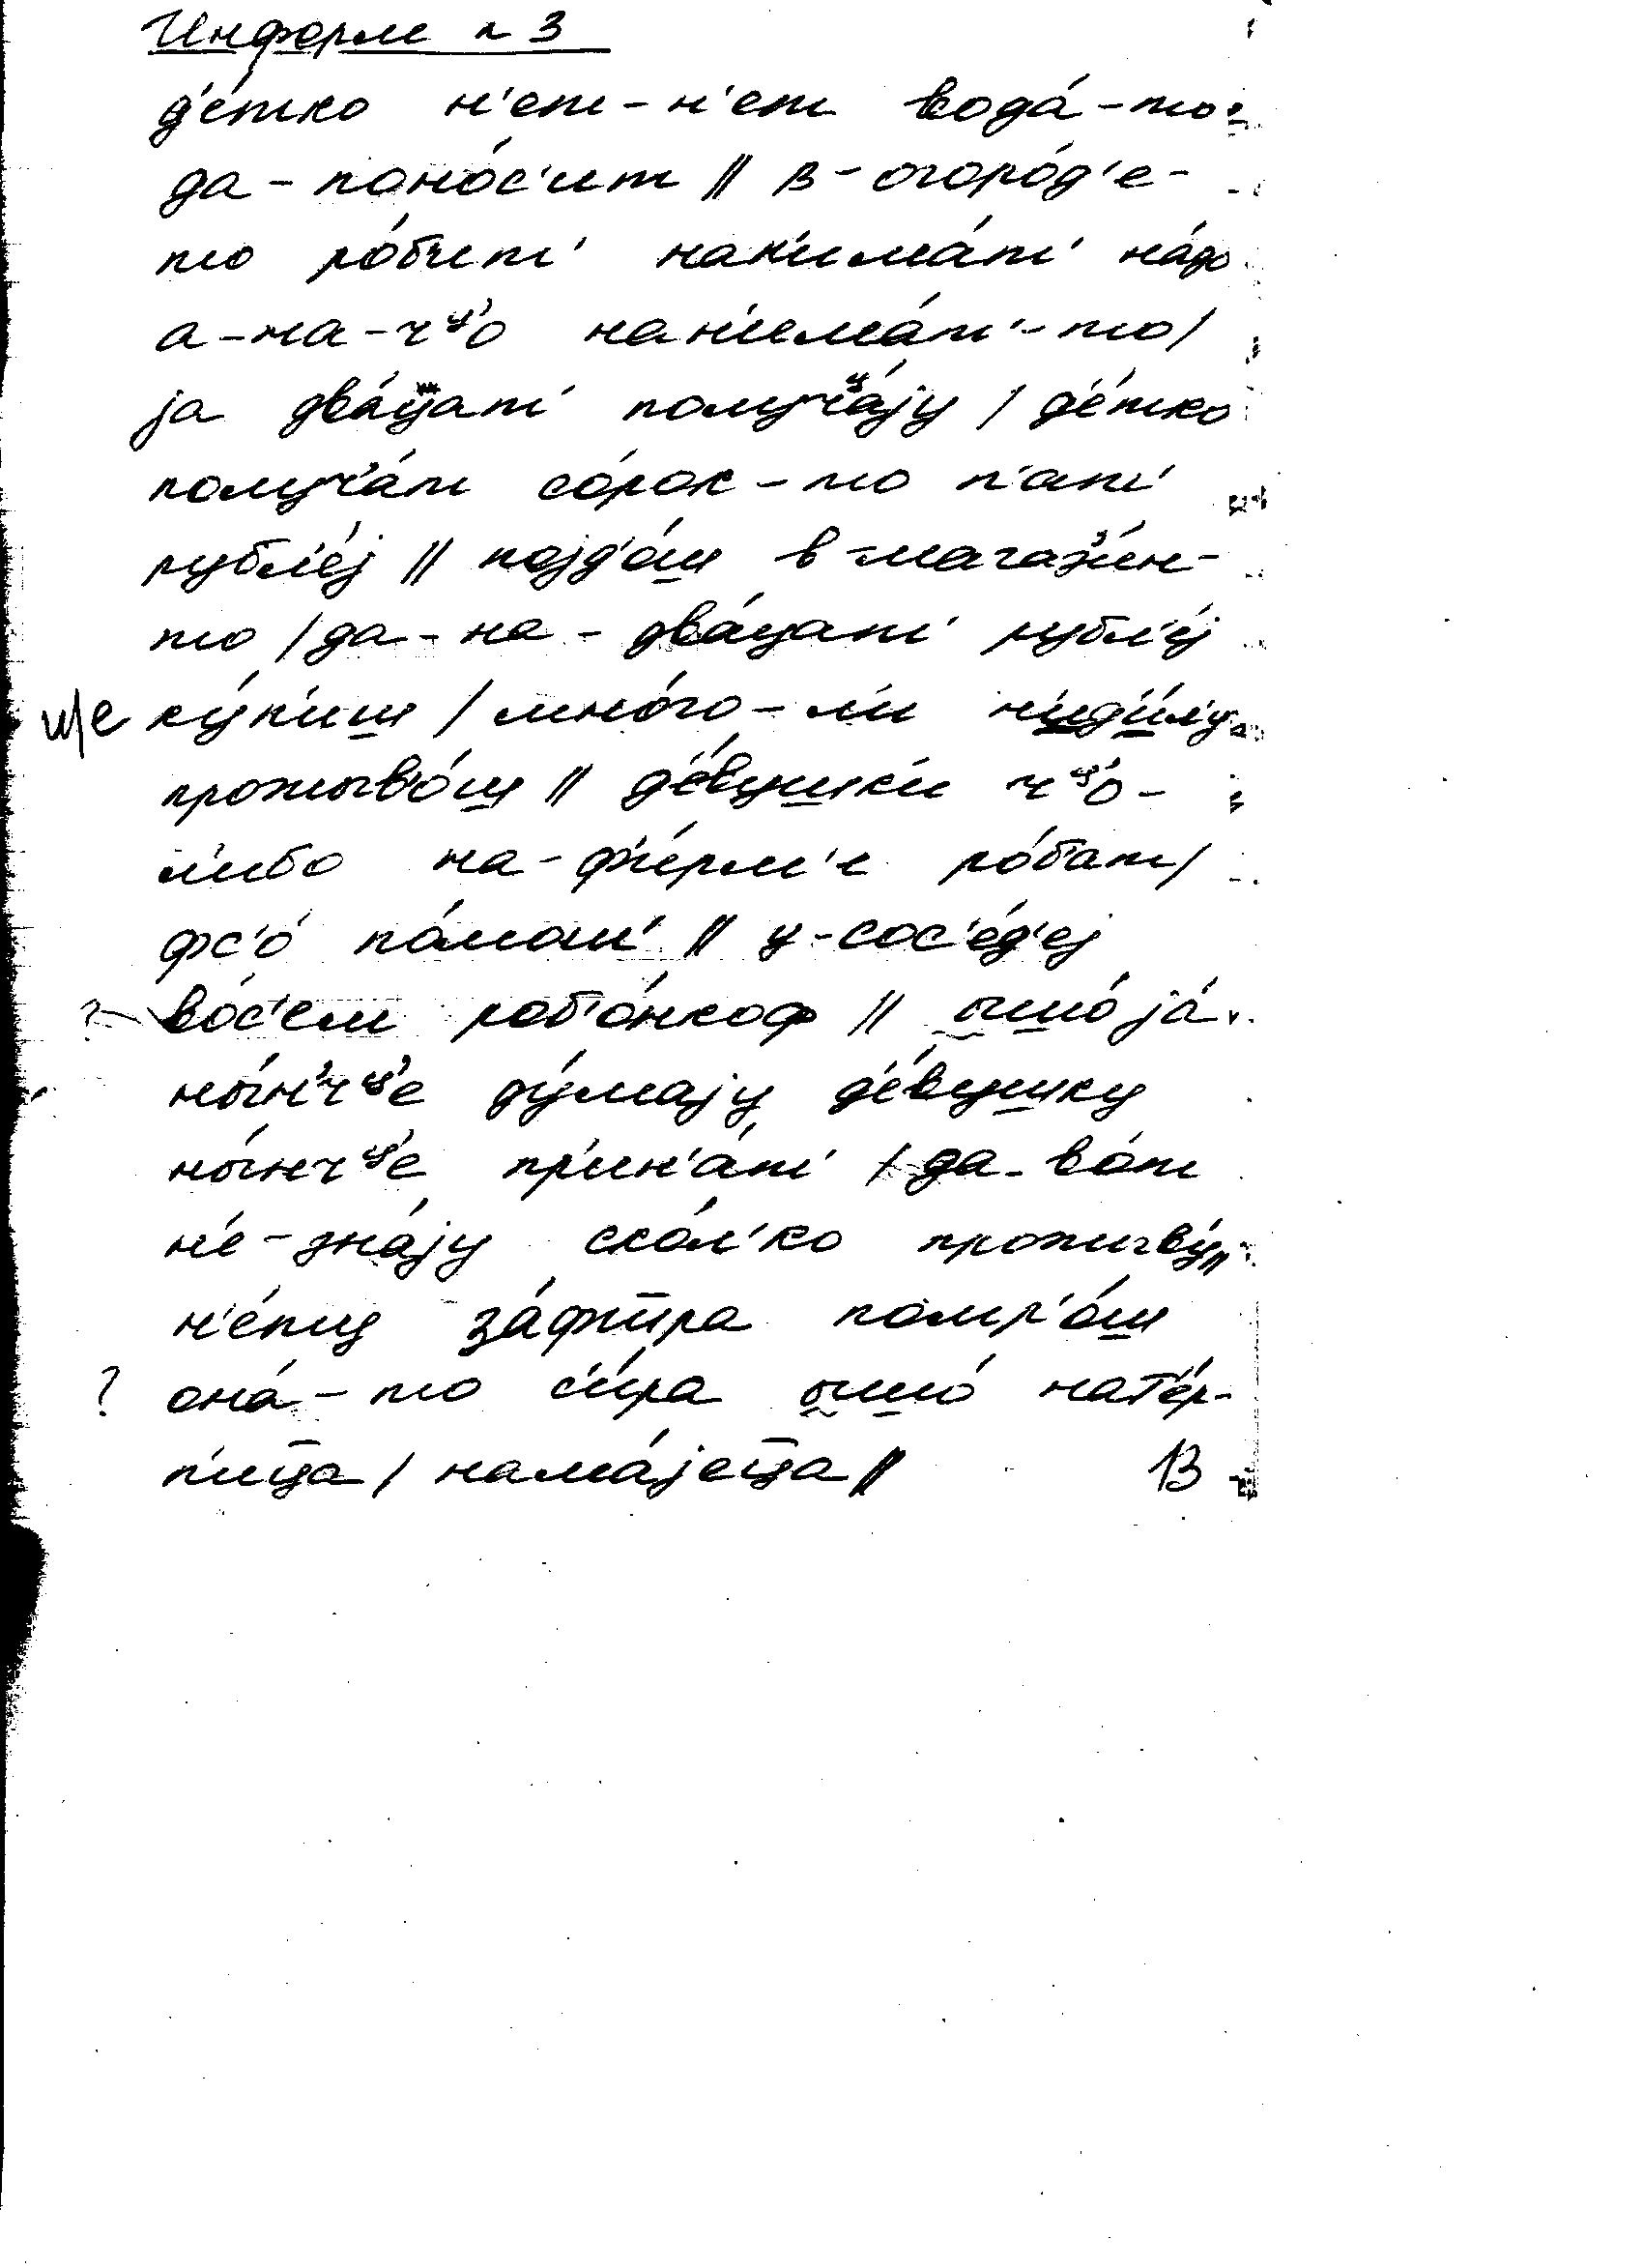 Информ n 3
д'е́тко н'ет-н'ет вода́-то
да-поно́с'ит || в-огоро́д'е-
то ро́бит' нан'има́т' на́до
а-на-чᶣ'о нан'има́т'-то/
ја два́цат' получ'а́јy / д'е́тко
получ'а́т со́рок-то п'ат'
рубл'е́ј || појд'о́ш в-магаз'и́н-
то / да-на-два́цат' рубл'е́ј
и/е ку́п'иш / мно́го-л'и н'ид'и́л'у
прожыв'о́ш || д'е́вушк'и чᶣ'о́-
л'ибо на-ф'е́рм'е ро́б'ат/
фс'о́ по́мош' || у-сос'е́д'еј
? во́с'ем роб'о́нкоф || ошшо́ ја́
ны́н'чᶣ'е ду́мајy д'е́вушку
ны́нчᶣ'е пр'ин'а́т' / да-во́т
н'е-зна́јy ско́л'ко прожыву́ ||
н'е́пи за́фтра помр'о́ш
? она́-то с'и́ра ошшо́ нат'е́р-
п'ица / нама́јеца ||
13